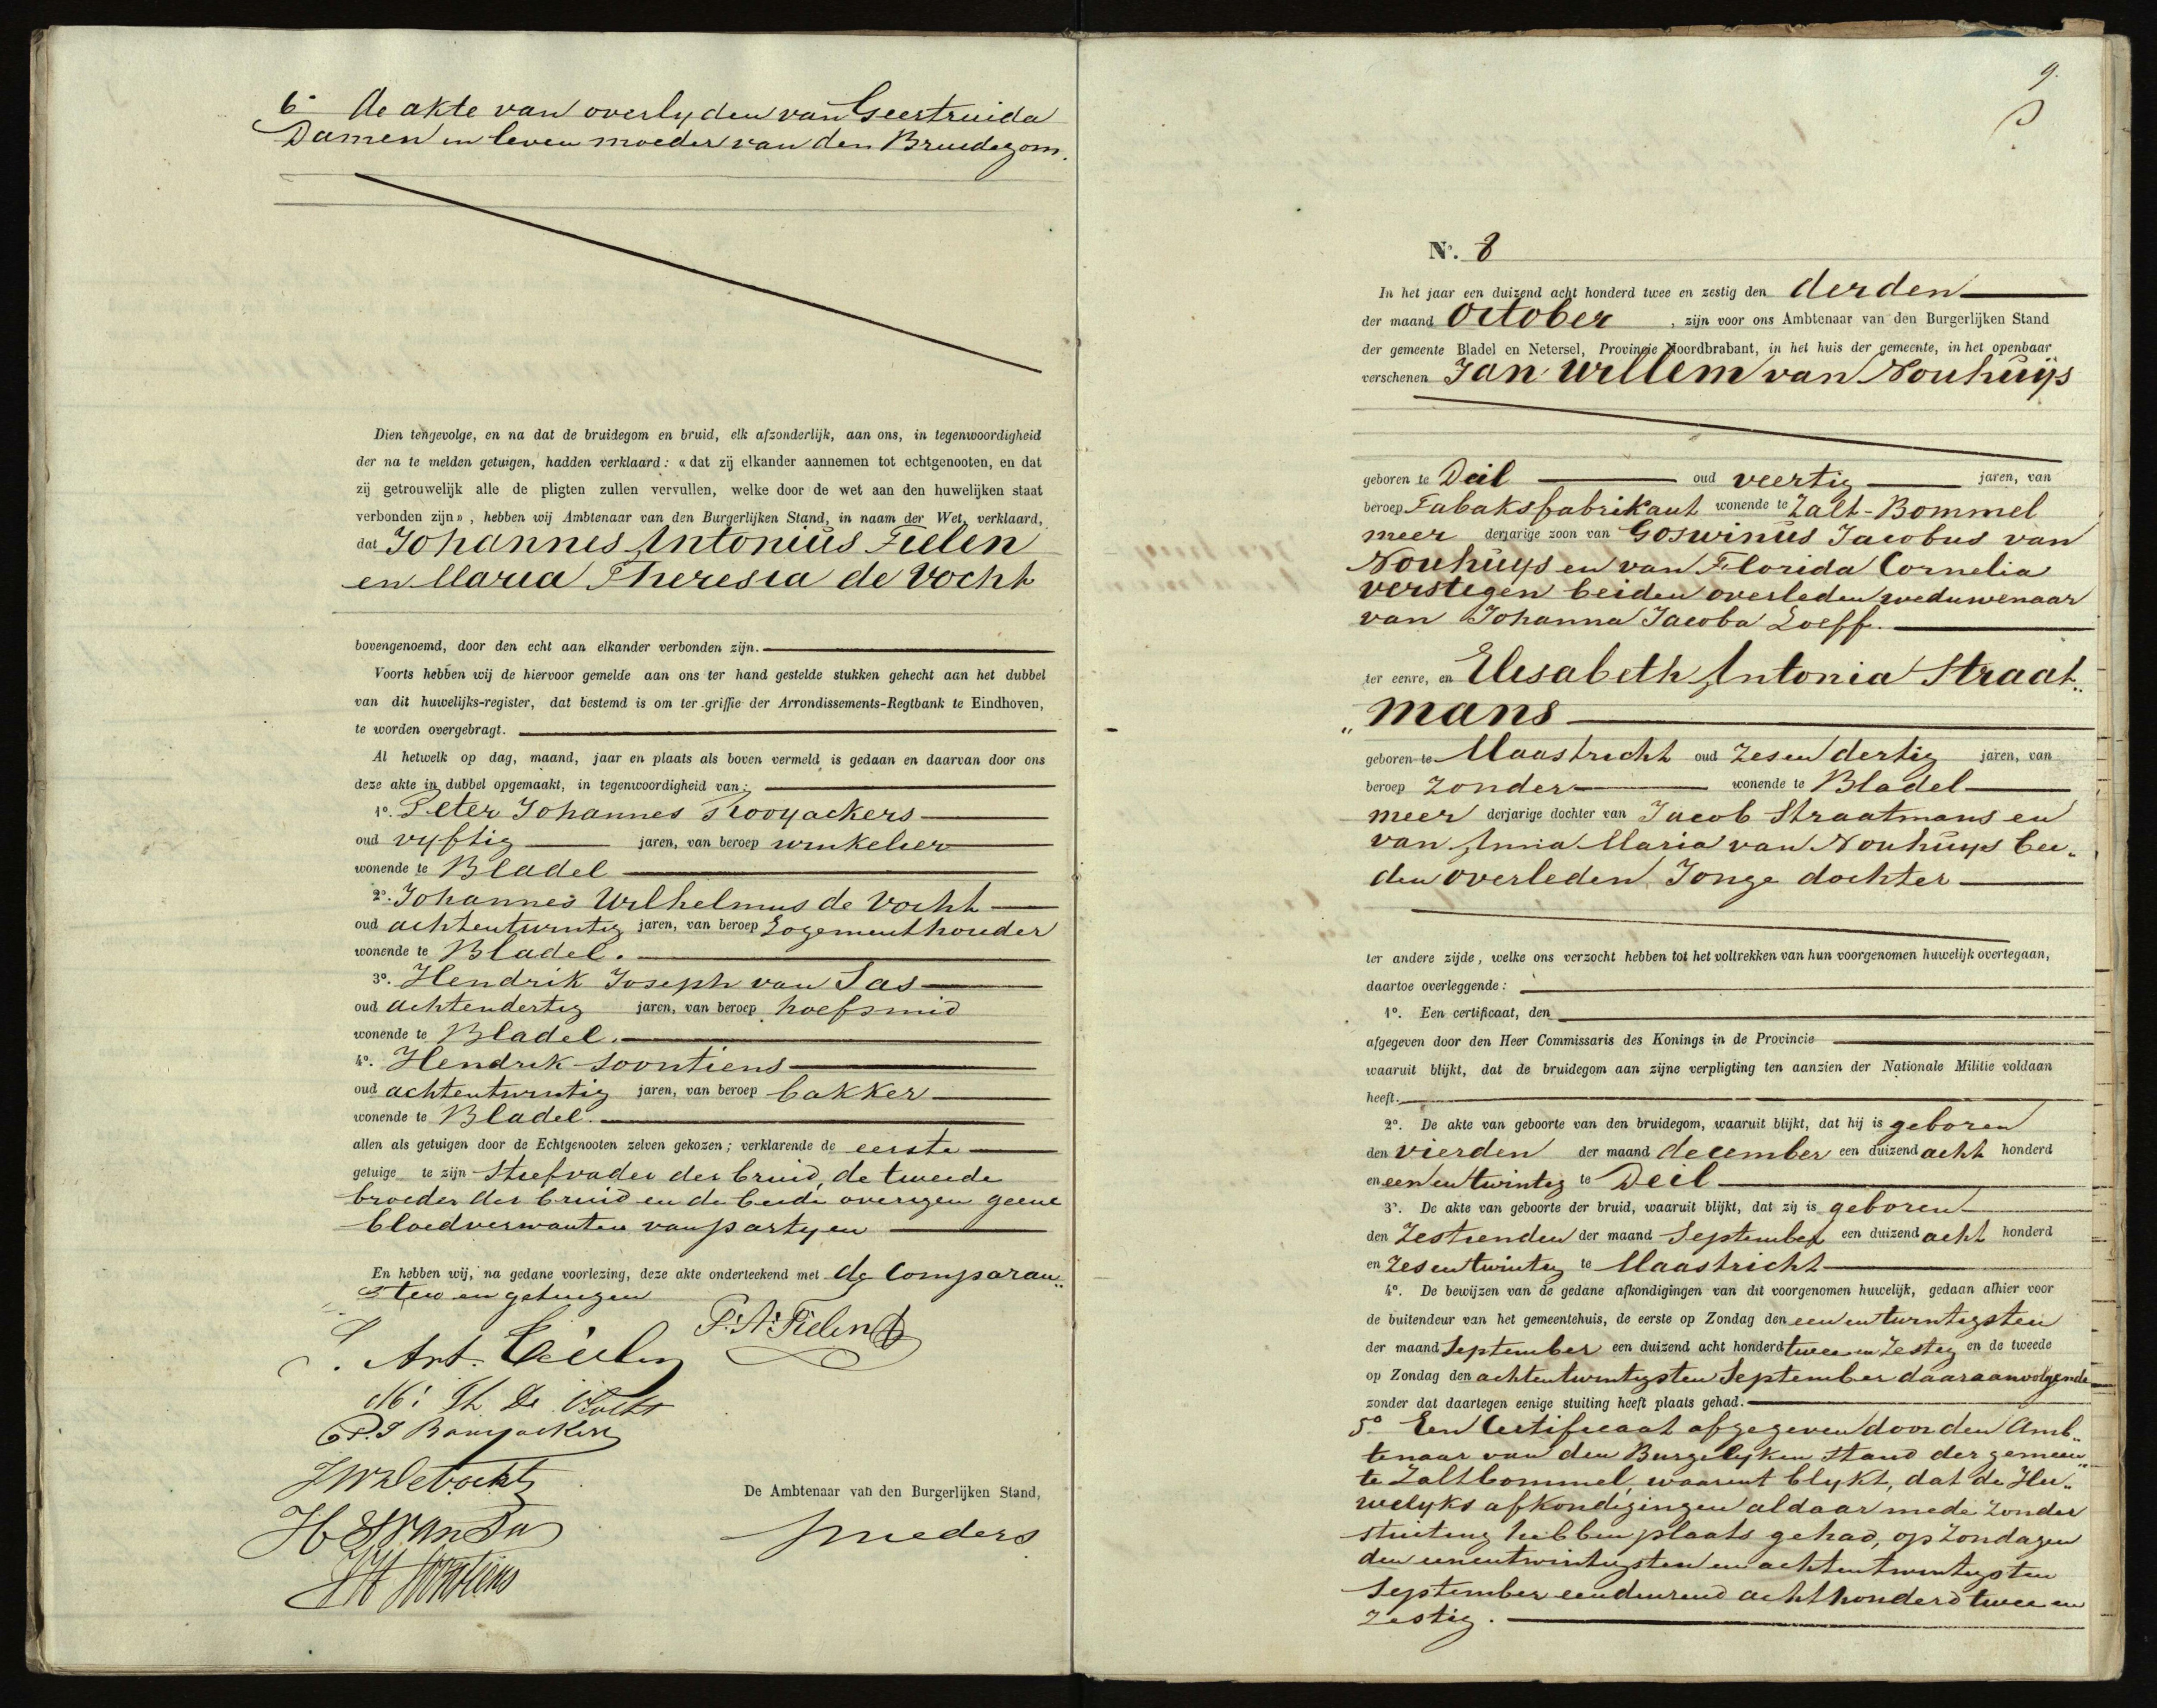 6° de akte van overlyden van Geertruida
Damen in leven moeder van den Bruidegom.
Dien tengevolge, en na dat de bruidegom en bruid, elk afzonderlijk, aan ons, in tegenwoordigheid
der na te melden getuigen, hadden verklaard: « dat zij elkander aannemen tot echtgenooten, en dat
zij getrouwelijk alle de pligten zullen vervullen, welke door de wet aan den huwelijken staat
verbonden zijn», hebben wij Ambtenaar van den Burgerlijken Stand, in naam der Wet, verklaard,
dat Johannes Antonius Fielen
en Maria Theresia de Vocht
bovengenoemd, door den echt aan elkander verbonden zijn.
Voorts hebben wij de hiervoor gemelde aan ons ter hand gestelde stukken gehecht aan het dubbel
van dit huwelijks-register, dat bestemd is om ter griffie der Arrondissements-Regtbank te Eindhoven,
te worden overgebragt.
Al hetwelk op dag, maand, jaar en plaats als boven vermeld is gedaan en daarvan door ons
deze akte in dubbel opgemaakt, in tegenwoordigheid van:
1°. Peter Johannes Rooyackers
oud vyftig jaren, van beroep winkelier
wonende te Bladel
2°. Johannes Wilhelmus de Vocht
oud achtentwintig jaren, van beroep Logementhouder
wonende te Bladel.
3°. Hendrik Joseph van Sas
oud achtendertig jaren, van beroep hoefsmid
wonende te Bladel.
4°. Hendrik Soontiens
oud achtentwintig jaren, van beroep bakker
wonende te Bladel.
allen als getuigen door de Echtgenooten zelven gekozen; verklarende de eerste
getuige te zijn stiefvader der bruid, de tweede
broeder der bruid en de beide overigen geene
bloedverwanten van partyen
En hebben wij, na gedane voorlezing, deze akte onderteekend met de Comparan„
ten en getuigen
J. Ant. Fielen P. A. Fielen
M: Th De Vocht
P. J Rooyackers
J W De Vocht
De Ambtenaar van den Burgerlijken Stand,
H J van Sas
H Soontiens
9.
N°. 8
In het jaar een duizend acht honderd twee en zestig den derden
der maand October, zijn voor ons Ambtenaar van den Burgerlijken Stand
der gemeente Bladel en Netersel, Provincie Noordbrabant, in het huis der gemeente, in het openbaar
verschenen Jan Willem van Nouhuijs
geboren te Deil oud veertig jaren, van
beroep Tabaksfabrikant wonende te Zalt-Bommel
meer derjarige zoon van Goswinus Jacobus van
Nouhuys en van Florida Cornelia
verstegen beiden overleden weduwenaar
van Johanna Jacoba Loeff.
ter eenre, en Elisabeth Antonia Straat„
„mans
geboren te Maastricht oud zesendertig jaren, van
beroep zonder wonende te Bladel
meer derjarige dochter van Jacob Straatmans en
van Anna Maria van Nouhuys bei„
den overleden, Jonge dochter
ter andere zijde, welke ons verzocht hebben tot het voltrekken van hun voorgenomen huwelijk overtegaan,
daartoe overleggende:
1°. Een certificaat, den
afgegeven door den Heer Commissaris des Konings in de Provincie
waaruit blijkt, dat de bruidegom aan zijne verpligting ten aanzien der Nationale Militie voldaan
heeft.
2°. De akte van geboorte van den bruidegom, waaruit blijkt, dat hij is geboren
den vierden der maand december een duizend acht honderd
en eenentwintig te Deil
3°. De akte van geboorte der bruid, waaruit blijkt, dat zij is geboren
den Zestienden der maand September een duizend acht honderd
en Zesentwintig te Maastricht
4°. De bewijzen van de gedane afkondigingen van dit voorgenomen huwelijk, gedaan alhier voor
de buitendeur van het gemeentehuis, de eerste op Zondag den eenentwintigsten
der maand September een duizend acht honderd twee en Zestig en de tweede
op Zondag den achtentwintigsten September daaraanvolgende
zonder dat daartegen eenige stuiting heeft plaats gehad.
5° Een Certificaat afgegeven door den Amb„
tenaar van den Burgelyken Stand der gemeen„
te Zaltbommel, waaruit blykt, dat de Hu„
welyks afkondigingen aldaar mede zonder
stuiting hebben plaats gehad, op Zondagen
den eenentwintigsten en achtentwintigsten
September eenduizend achthonderd twee en
zestig.